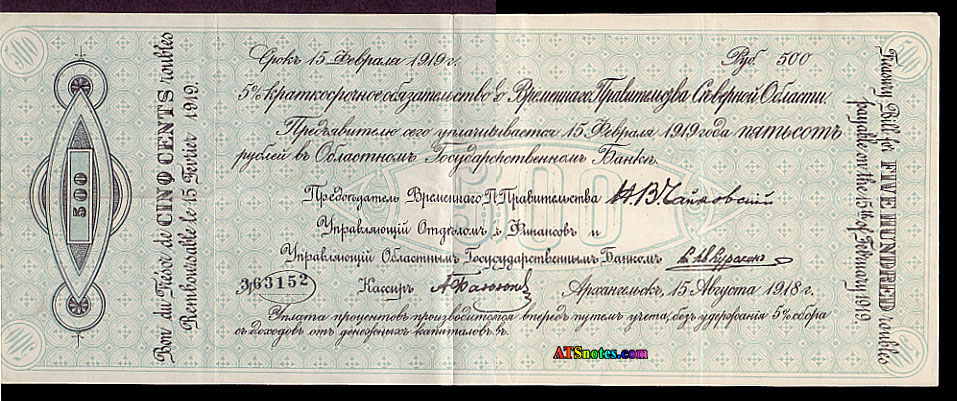 Срокъ 15 Февраля 1919 г. Руб. 500
5% краткосрочное обязательство Временнаго Правительства Сѣверной Области.
Предъявителю сего уплачивается 15 Февраля 1919 года пятьсотъ
рублей въ Областномъ Государственномъ Банкѣ.
Предсѣдатель Временнаго Правительства Н. В. Чайковскій
Управляющій Отдѣломъ Финансовъ и
Управляющій Областнымъ Государственнымъ Банкомъ
363152 Кассиръ Архангельскъ, 15 Августа 1918 г.
Уплата процентовъ производится впередъ путемъ учета, безъ удержанія 5% сбора
съ доходовъ отъ денежныхъ капиталовъ.
Bon du Trésor de CINQ CENTS roubles
Remboursable le 15 Fevrier 1919.
500
Treasury Bill for FIVE HUNDRED roubles
payable on the 15th of February 1919.
500
ATSnotes.com